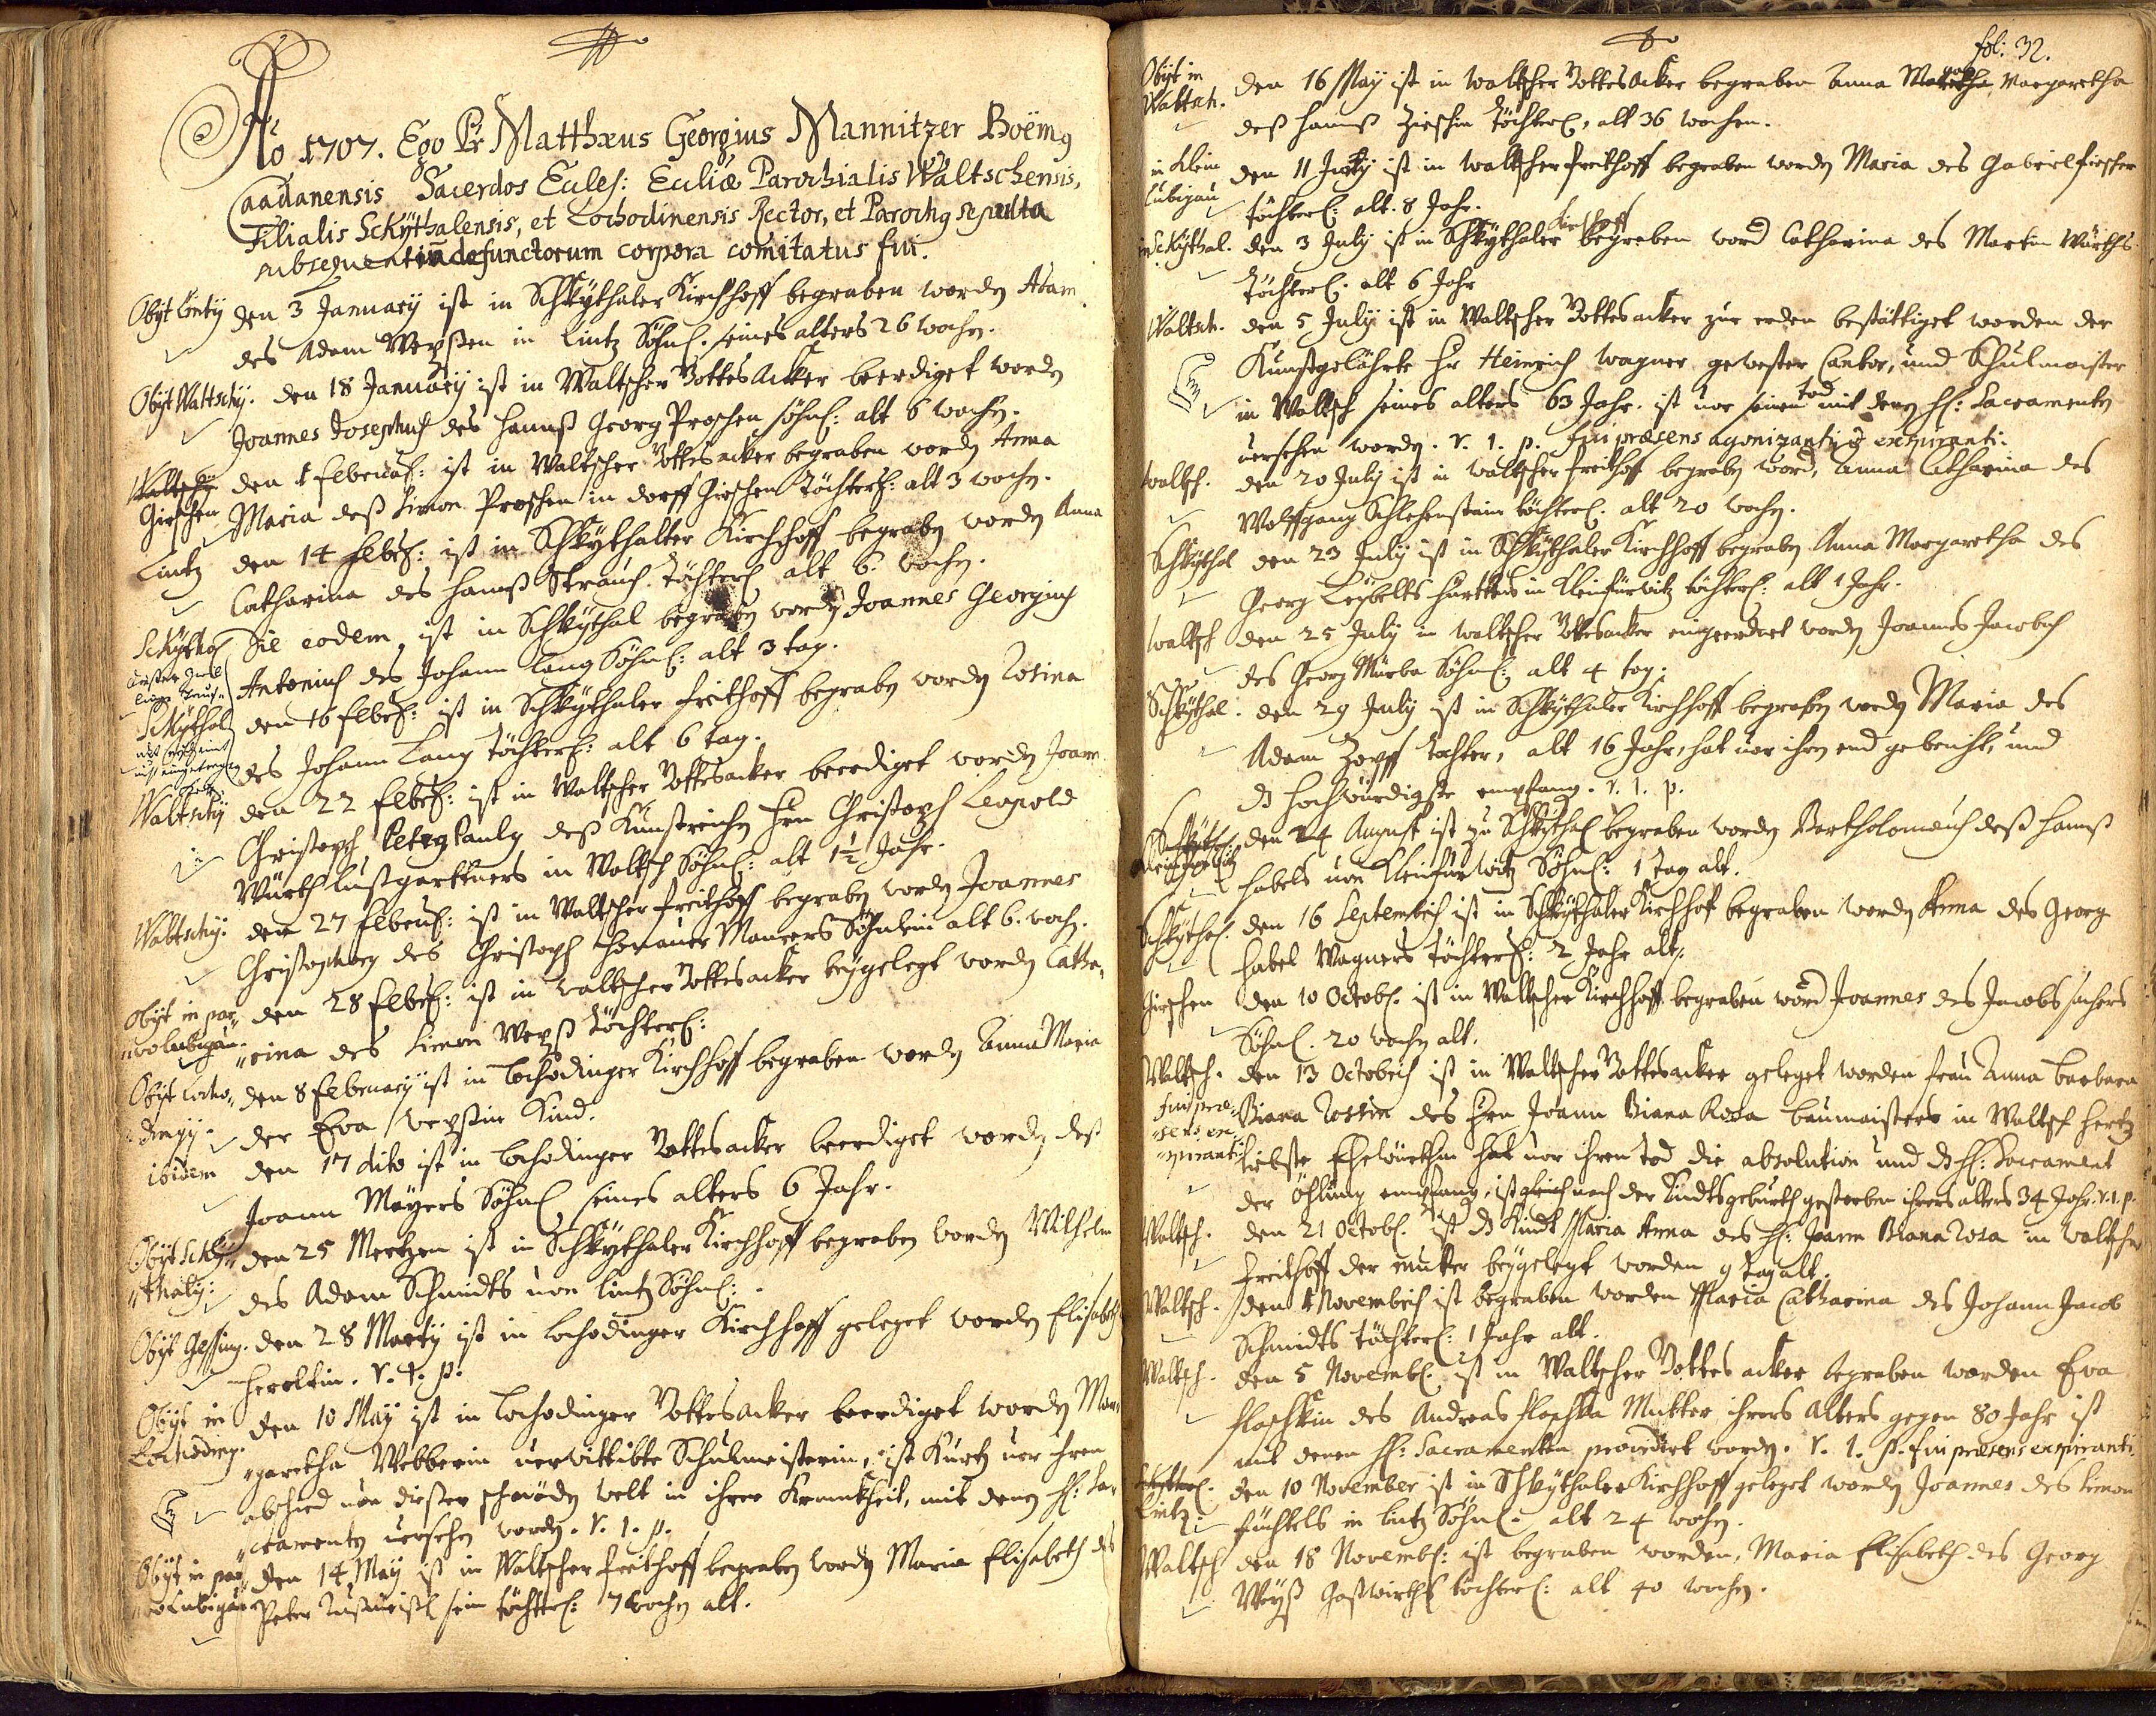 Ao 1707. Ego Pr Matthæus Georgius Mannitzer Boëmq
Caadanensis Sacerdos Eccles: Eccliæ Parochialis Waltschensis,
Filialis Sckÿthalensis, et Lochodinensis Rector, et Parochq sepulta
subsequentiu defunctorum corpora comitatus fui.
Obÿt Lintÿ den 3 Januarÿ ist in Schkÿthaler Kirchhoff begraben wordn Adam
des Adam Wepßen in Lintz Söhnl. seines alters 26 wochn.
Obÿt Waltschÿ. den 18 Januarÿ ist in Waltscher Gottes Acker beerdiget wordn
Joannes Josephus des Hannß Georg Proschen söhnl: alt 6 wochn.
Girschen den 1 Februa: ist in Waltscher Gottesacker begraben wordn Anna
Maria deß Simon Proschen in dorff Girschen Töchterl: alt 3 wochn.
Lintz den 14 Febr: ist in Schkÿthaler Kirchhoff begrabn wordn Anna
Catharina des Hannß Strauch Töchterl alt 6 wochn.
Sckÿthal Die eodem ist in Schkÿthal begraben wordn Joannes Georgius
Antonius des Johann Lang Söhnl: alt 3 tag.
Sckÿthal den 16 Febr: ist in Schkÿthaler freithoff begrabn wordn Rosina
des Johann Lang Töchterl: alt 6 tag.
Waltschÿ den 22 Febr: ist in Waltscher Gottesacker beerdiget wordn Joann
Christoph Petrq Paulq deß Kunstreichn Hrn Christoph Leopold
Würth Lustgarttners in Waltsch Söhnl: alt 1½ Jahr.
Waltschÿ. den 27 Febru: ist in Waltscher freithoff begrabn wordn Joannes
Christophorq des Christoph Honauer Maurers Söhnlein alt 6. wochn.
Obÿt in par- den 28 Febr: ist in Waltscher Gottesacker beÿgelegt wordn Catha-
vo Lubigau. rina des Simon Wepß Töchterl:
Obÿt Locho- den 8 Februarÿ ist in Lochodinger Kirchhoff begraben wordn Anna Maria
dingÿ. der Eva Wepßin Kind.
ibidem den 17 dito ist in Lochodinger Gottesacker beerdiget wordn deß
Joann Maÿers Söhnl seines alters 6 Jahr.
Obÿt Sckÿ- den 25 Mertzen ist in Schkÿthaler Kirchhoff begraben wordn Wilhelm
thalÿ: des Adam Schmidts von Lintz Söhnl:
Obÿt Gessing. den 28 Martÿ ist in Lochodinger Kirchhoff geleget wordn Elisabeth
Heroltin. r. i. p.
Obÿt in den 10 Maÿ ist in Lochodinger Gottesacker beerdiget wordn Mar-
Lochoding. garetha Webberin verwittibte Schulmeisterin, ist kurtz vor ihren
abschied von dießer schnöden welt in ihrer Kranckheit, mit denen Hl: Sa-
cramenten versehen wordn. r. i. p.
Obÿt in par- den 14 Maÿ ist in Waltscher freithoff begraben wordn Maria Elisabeth des
vo Lubigau Peter töchterl: 7 wochn alt.
fol: 32.
Obÿt in den 16 Maÿ ist in Waltscher Gottesacker begraben Anna Margaretha
Waltsch. deß Hannß Töchterl, alt 36 wochen.
in Klein den 11 Junÿ ist in Waltscher freithoff begraben worden Maria des Gabriel fischer
Lubigau töchterl: alt. 8 Jahr.
in Sckÿthal. den 3 Julÿ ist in Schkÿthaler Kirchoff begraben word Catharina des Martin Würths
Töchterl. alt 6 Jahr
Waltsch. den 5 Julÿ ist in Waltscher Gottesacker zur erden bestättiget worden der
Kunstgelährte Hr Heinrich Wagner gewester Cantor, und Schulmaister
in Waltsch seines alters 63 Jahr. ist vor seinem tod mit denen Hl: Sacramentn
versehen wordn. r. i. p. fui præsens agonizanti exspiranti.
Waltsch. den 20 Julÿ ist in Waltscher freithoff begrabn word, Anna Catharina des
Wolffgang Schlehenstain töchterl. alt 20 wochn.
Schkÿthal den 23 Julÿ ist in Schkÿthaler Kirchhoff begrabn Anna Margaretha des
Georg Leÿbelts in Kleinfürwitz töchterl: alt 1 Jahr.
Waltsch den 25 Julÿ in Waltscher Gottesacker wordn Joannes Jacobus
des Georg Mürba Söhnl: alt 4 tag.
Schkÿthal. den 29 Julÿ ist in Schkÿthaler Kirchhoff begraben wordn Maria des
Adam Zapff Tochter, alt 16 Jahr, hat vor ihrem end gebeicht, und
ds Hochwürdigste empfang. r. i. p.
Kleinfürwitz den 24 August ist zu Schkÿthal begraben wordn Bartholomæus deß Hannß
Habels von Kleinfürwitz Söhnl: 1 Tag alt.
Schkÿthal. den 16 Septembris ist in Schkÿthaler Kirchhoff begraben wordn Anna des Georg
Habel Wagners Töchterl: 2 Jahr alt.
Girschen den 10 Octob. ist in Waltscher Kirchhoff begraben word Joannes des Jacobs
Söhnl. 20 wochn alt.
Waltsch. den 13 Octobris ist in Waltscher Gottesacker geleget worden frau Anna Barbara
fui præ- Biana Rossin des Hrn Joann Biana Rosa baumaisters in Waltsch hertz-
sens ex- liebste Ehewürthin hat vor ihren tod die absolution und ds Hl: Sacrament
spiranti: der öhlung empfang, ist gleich nach der Kindtsgeburth gestorben ihres alters 34 Jahr. r. i. p.
Waltsch. den 21 Octob. ist ds Kindt Maria Anna des H: Joann Biana Rosa in Waltscher
freithoff der mutter beÿgelegt worden 9 Tag alt.
Waltsch. den 1 Novembris ist begraben worden Maria Catharina des Johann Jacob
Schmidts töchterl: 1 Jahr alt.
Waltsch. den 5 Novemb. ist in Waltscher Gottes acker begraben worden Eva
Floschkin des Andreas Floschka Mutter ihres Alters gegen 80 Jahr ist
mit denen Hl: Sacramenten providirt wordn. r. i. p. fui præsens exspiranti.
Lintz. den 10 November ist in Schkÿthaler Kirchhoff geleget wordn Joannes des Simon
füchtels in Lintz Söhnl. alt 24 wochn.
Waltsch den 18 Novemb: ist begraben worden, Maria Elisabeth des Georg
Weÿß Gastwirths töchterl: alt 40 wochn.